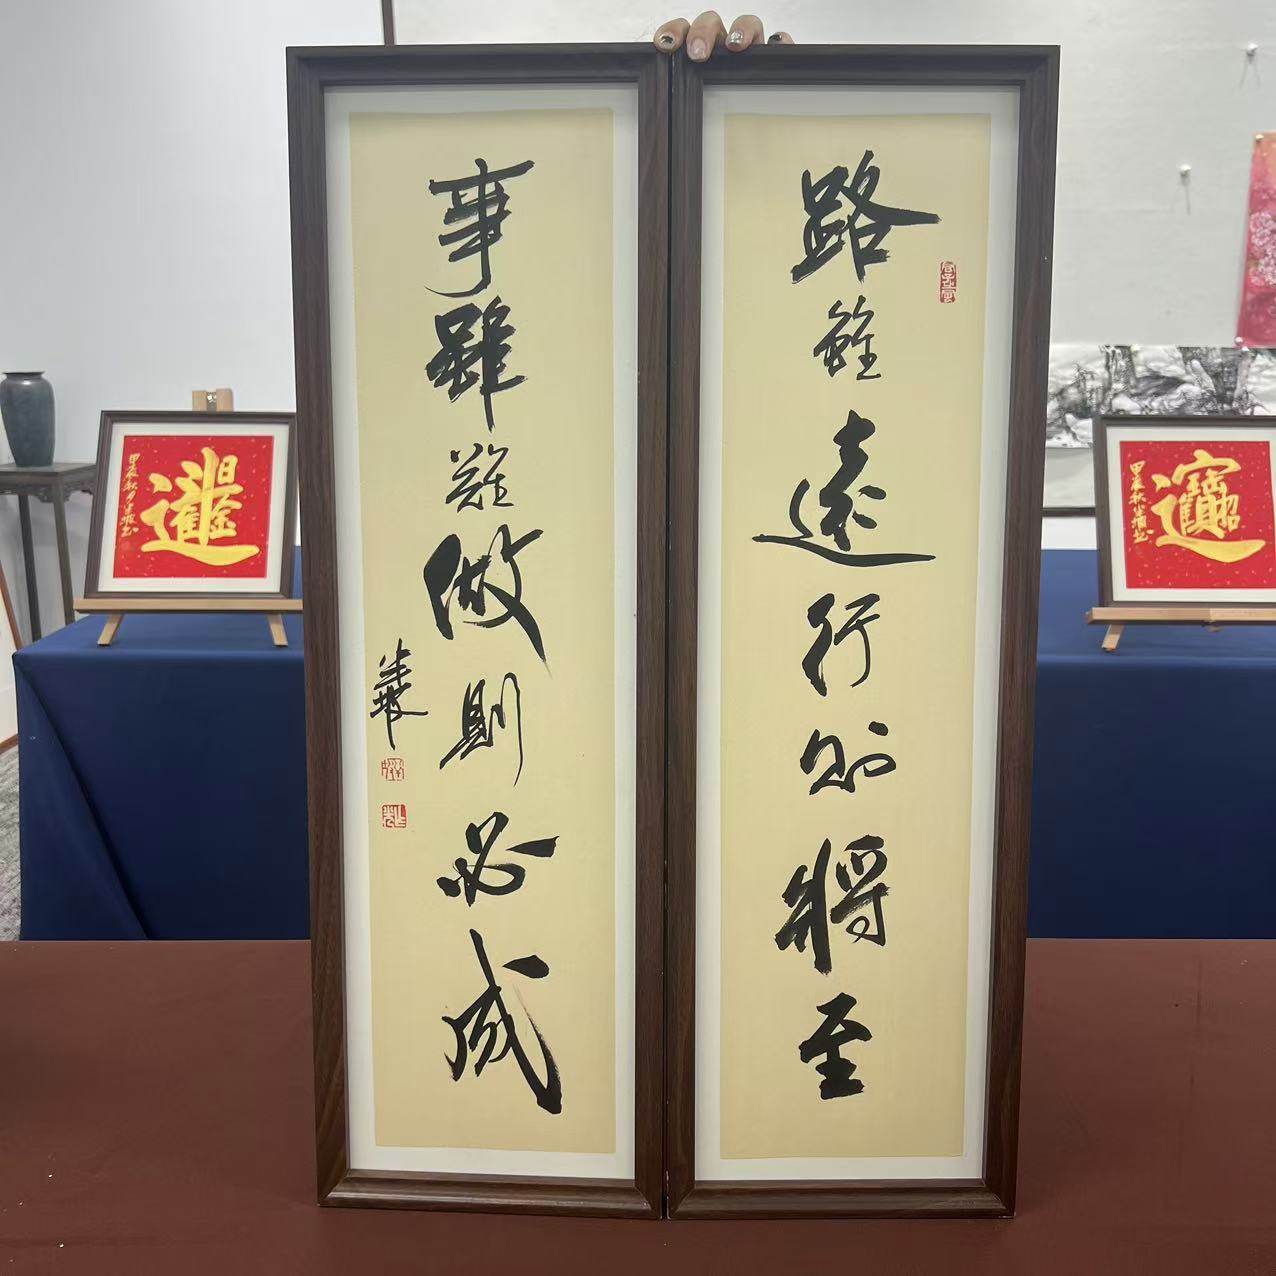 路雖遠行則將至
事雖難做則必成
甲辰秋月
甲辰秋